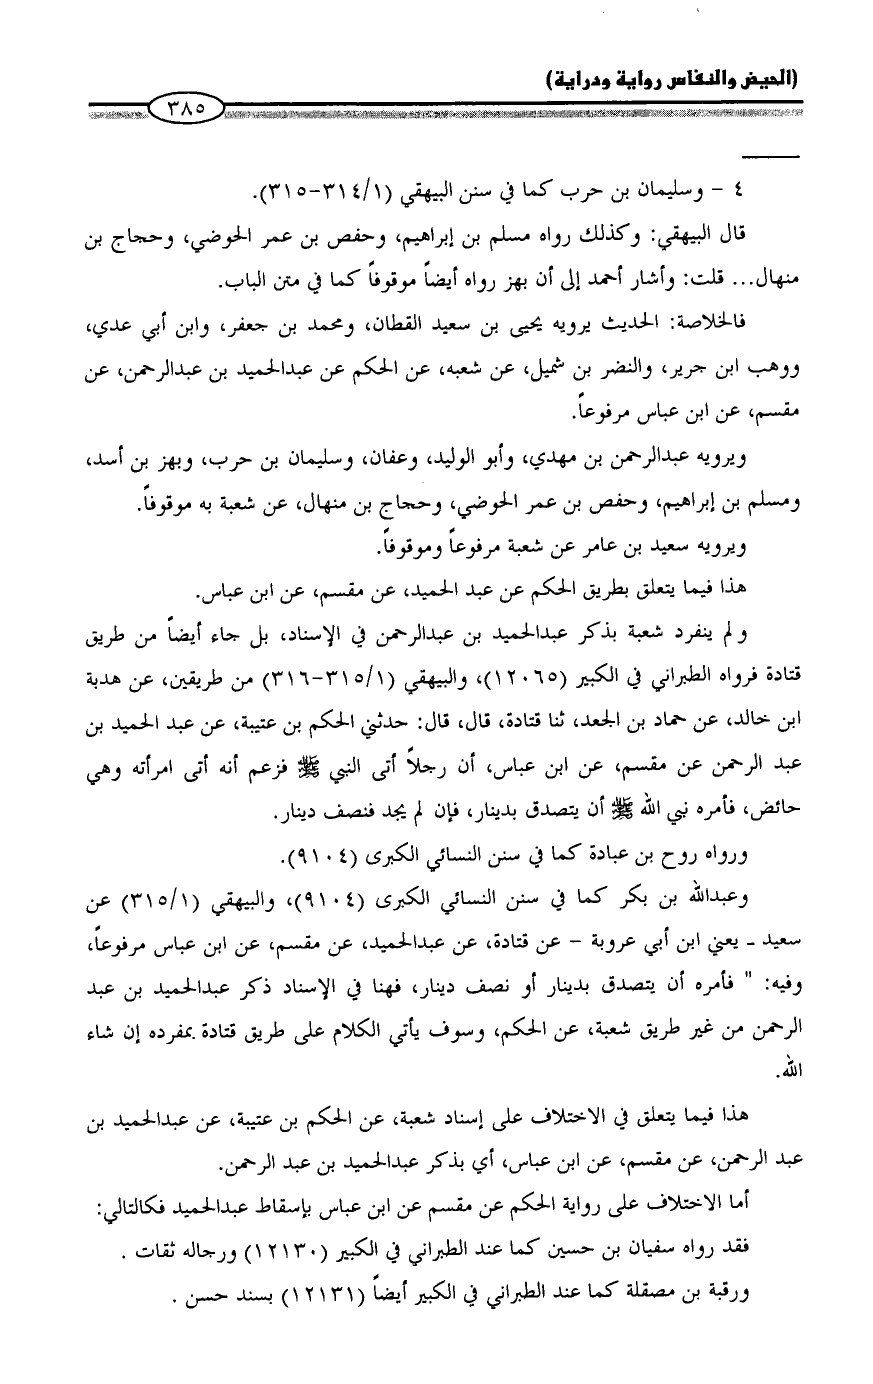 (الحيض والنفاس رواية ودراية)
٣٨٥
٤ - وسليمان بن حرب كما في سنن البيهقي (٣١٤/١-٣١٥).
قال البيهقي: وكذلك رواه مسلم بن إبراهيم، وحفص بن عمر الحوضي، وحجاج بن
منهال... قلت: وأشار أحمد إلى أن بهز رواه أيضاً موقوفاً كما في متن الباب.
فالخلاصة: الحديث يرويه يحيى بن سعيد القطان، ومحمد بن جعفر، وابن أبي عدي،
ووهب ابن جرير، والنضر بن شميل، عن شعبه، عن الحكم عن عبدالحميد بن عبدالرحمن، عن
مقسم، عن ابن عباس مرفوعاً.
ويرويه عبدالرحمن بن مهدي، وأبو الوليد، وعفان، وسليمان بن حرب، وبهز بن أسد،
ومسلم بن إبراهيم، وحفص بن عمر الحوضي، وحجاج بن منهال، عن شعبة به موقوفاً.
ويرويه سعيد بن عامر عن شعبة مرفوعاً وموقوفاً.
هذا فيما يتعلق بطريق الحكم عن عبد الحميد، عن مقسم، عن ابن عباس.
و لم ينفرد شعبة بذكر عبدالحميد بن عبدالرحمن في الإسناد، بل جاء أيضاً من طريق
قتادة فرواه الطبراني في الكبير (١٢٠٦٥)، والبيهقي (٣١٥/١-٣١٦) من طريقين، عن هدبة
ابن خالد، عن حماد بن الجعد، ثنا قتادة، قال، قال: حدثني الحكم بن عتيبة، عن عبد الحميد بن
عبد الرحمن عن مقسم، عن ابن عباس، أن رجلاً أتى النبي ﷺ فزعم أنه أتى امرأته وهي
حائض، فأمره نبي الله ﷺ أن يتصدق بدينار، فإن لم يجد فنصف دينار.
ورواه روح بن عبادة كما في سنن النسائي الكبرى (٩١٠٤).
وعبدالله بن بكر كما في سنن النسائي الكبرى (٩١٠٤)، والبيهقي (٣١٥/١) عن
سعيد ـ يعني ابن أبي عروبة - عن قتادة، عن عبدالحميد، عن مقسم، عن ابن عباس مرفوعاً،
وفيه: " فأمره أن يتصدق بدينار أو نصف دينار، فهنا في الإسناد ذكر عبدالحميد بن عبد
الرحمن من غير طريق شعبة، عن الحكم، وسوف يأتي الكلام على طريق قتادة بمفرده إن شاء
الله.
هذا فيما يتعلق في الاختلاف على إسناد شعبة، عن الحكم بن عتيبة، عن عبدالحميد بن
عبد الرحمن، عن مقسم، عن ابن عباس، أي بذكر عبدالحميد بن عبد الرحمن.
أما الاختلاف على رواية الحكم عن مقسم عن ابن عباس بإسقاط عبدالحميد فكالتالي:
فقد رواه سفيان بن حسين كما عند الطبراني في الكبير (١٢١٣٠) ورجاله ثقات .
ورقبة بن مصقلة كما عند الطبراني في الكبير أيضاً (١٢١٣١) بسند حسن .